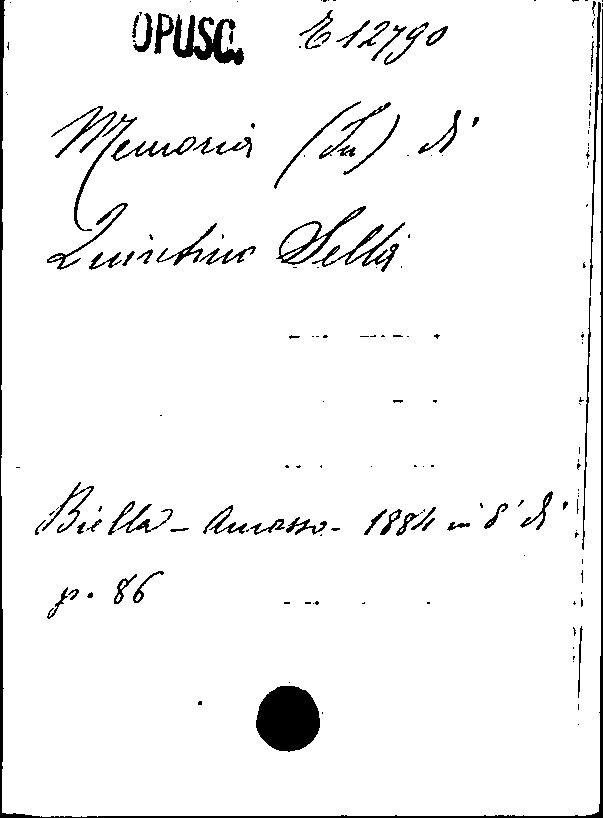 OPUSC. E 12790
Memoria (In) di
Quintino Sella
Biella - Amosso - 1884 in 8° di
p. 86